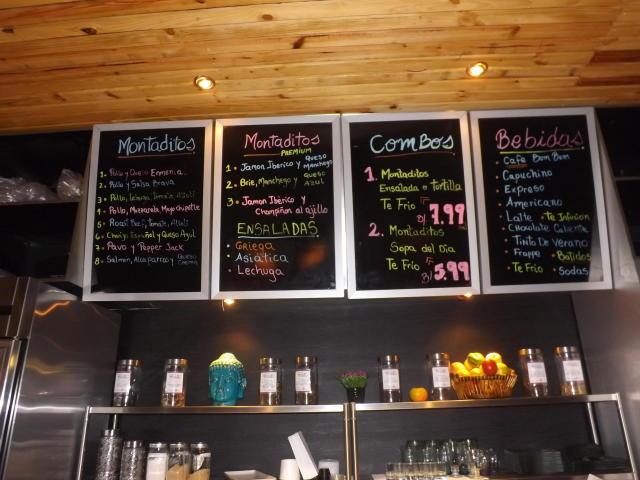 Montaditos
1- Pollo y Queso Enmental.
2- Pollo y Salsa Brava
3- Pollo, Lechuga, Tomate, Ajoli
4- Pollo, Mozzarela, Mayo Chipotle
5- Roast Beef, Tomate, Alioli
6- Chorizo Español y Queso Azul
7- Pavo y Pepper Jack
8- Salmón, Alcaparras y Queso Crema
Montaditos
PREMIUM
1- Jamon Iberico y Queso Manchego
2- Brie, Manchego y Queso Azul
3- Jamon Ibérico y
Champiñon al ajillo
ENSALADAS
Griega
Asiatica
Lechuga
Combos
1. Montaditos
Ensalada o tortilla
Te Frio
B/ 7.99
2. Montaditos
Sopa del Dia
Te Frio
B/ 5.99
Bebidas
Cafe Bom Bom
• Capuchino
• Expreso
• Americano
• Latte • Te Infusion
• Chocolate Caliente
• Tinto De Verano
• Frappe • Batidos
• Te Frio • Sodas